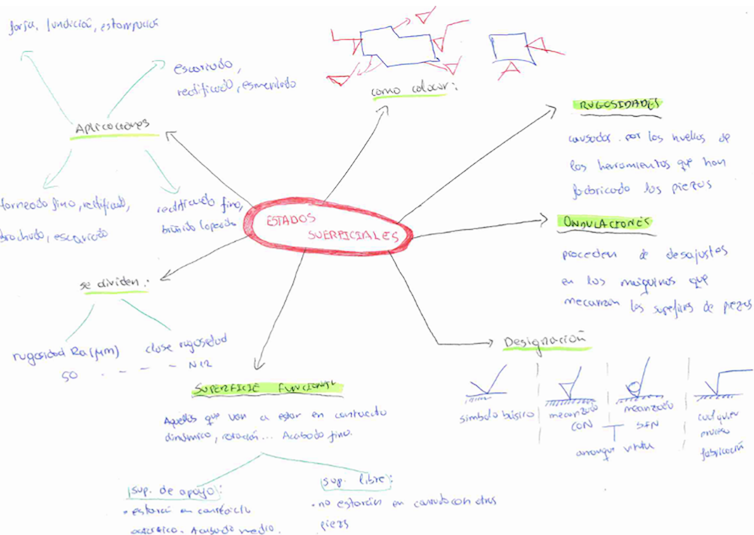 forja, fundición, estampación
escariado,
rectificado, esmerilado
Aplicaciones
torneado fino, rectificado,
brochado, escariado
rectificado fino,
como colocar:
RUGOSIDADES
causadas por las huellas
de las herramientas que han
fabricado las piezas
ESTADOS
SUERFICIALES
ONDULACIONES
proceden de desajustes
en las maquinas que
mecanizan las de piezas
se dividen:
rugosidad Ra (µm)
50 - - - - N12
clase rugosidad
SUPERFICIE FUNCIONAL
Aquellas que van a estar en contacto
dinámico, rotación... Acabado fino.
sup. de apoyo:
• estarán en contacto
Acabado medio.
sup. libre:
• no estarán en contacto con otras
piezas
Designación
simbolo básico
mecanizado
CON
mecanizado
SIN
arranque viruta
cualquier
fabricación